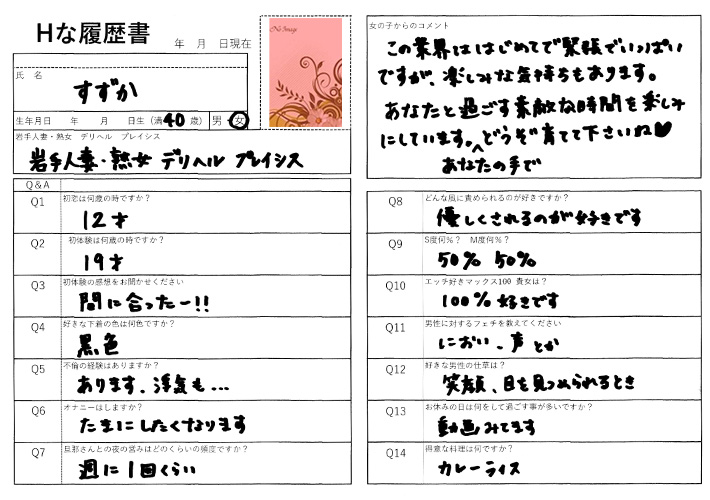 Hな履歴書
年 月 日現在
No Image
氏 名
すずか
生年月日 年 月 日生 (満40歳) 男・女
岩手人妻・熟女 デリヘル プレイシス
岩手人妻・熟女 デリヘル プレイシス
Q&A
Q1 初恋は何歳の時ですか?
12才
Q2 初体験は何歳の時ですか?
19才
Q3 初体験の感想をお聞かせください
間に合ったー!!
Q4 好きな下着の色は何色ですか?
黒色
Q5 不倫の経験はありますか?
あります、浮気も...
Q6 オナニーはしますか?
たまにしたくなります
Q7 旦那さんとの夜の営みはどのくらいの頻度ですか?
週に1回くらい
女の子からのコメント
この業界ははじめてで緊張でいっぱい
ですが、楽しみな気持ちもあります。
あなたと過ごす素敵な時間を楽しみ
にしています。どうぞ育てて下さいね♥
あなたの手で
Q8 どんな風に責められるのが好きですか?
優しくされるのが好きです
Q9 S度何%? M度何%?
50% 50%
Q10 エッチ好きマックス100 貴女は?
100%好きです
Q11 男性に対するフェチを教えてください
におい、声とか
Q12 好きな男性の仕草は?
笑顔、目を見つめられるとき
Q13 お休みの日は何をして過ごす事が多いですか?
動画みてます
Q14 得意な料理は何ですか?
カレーライス